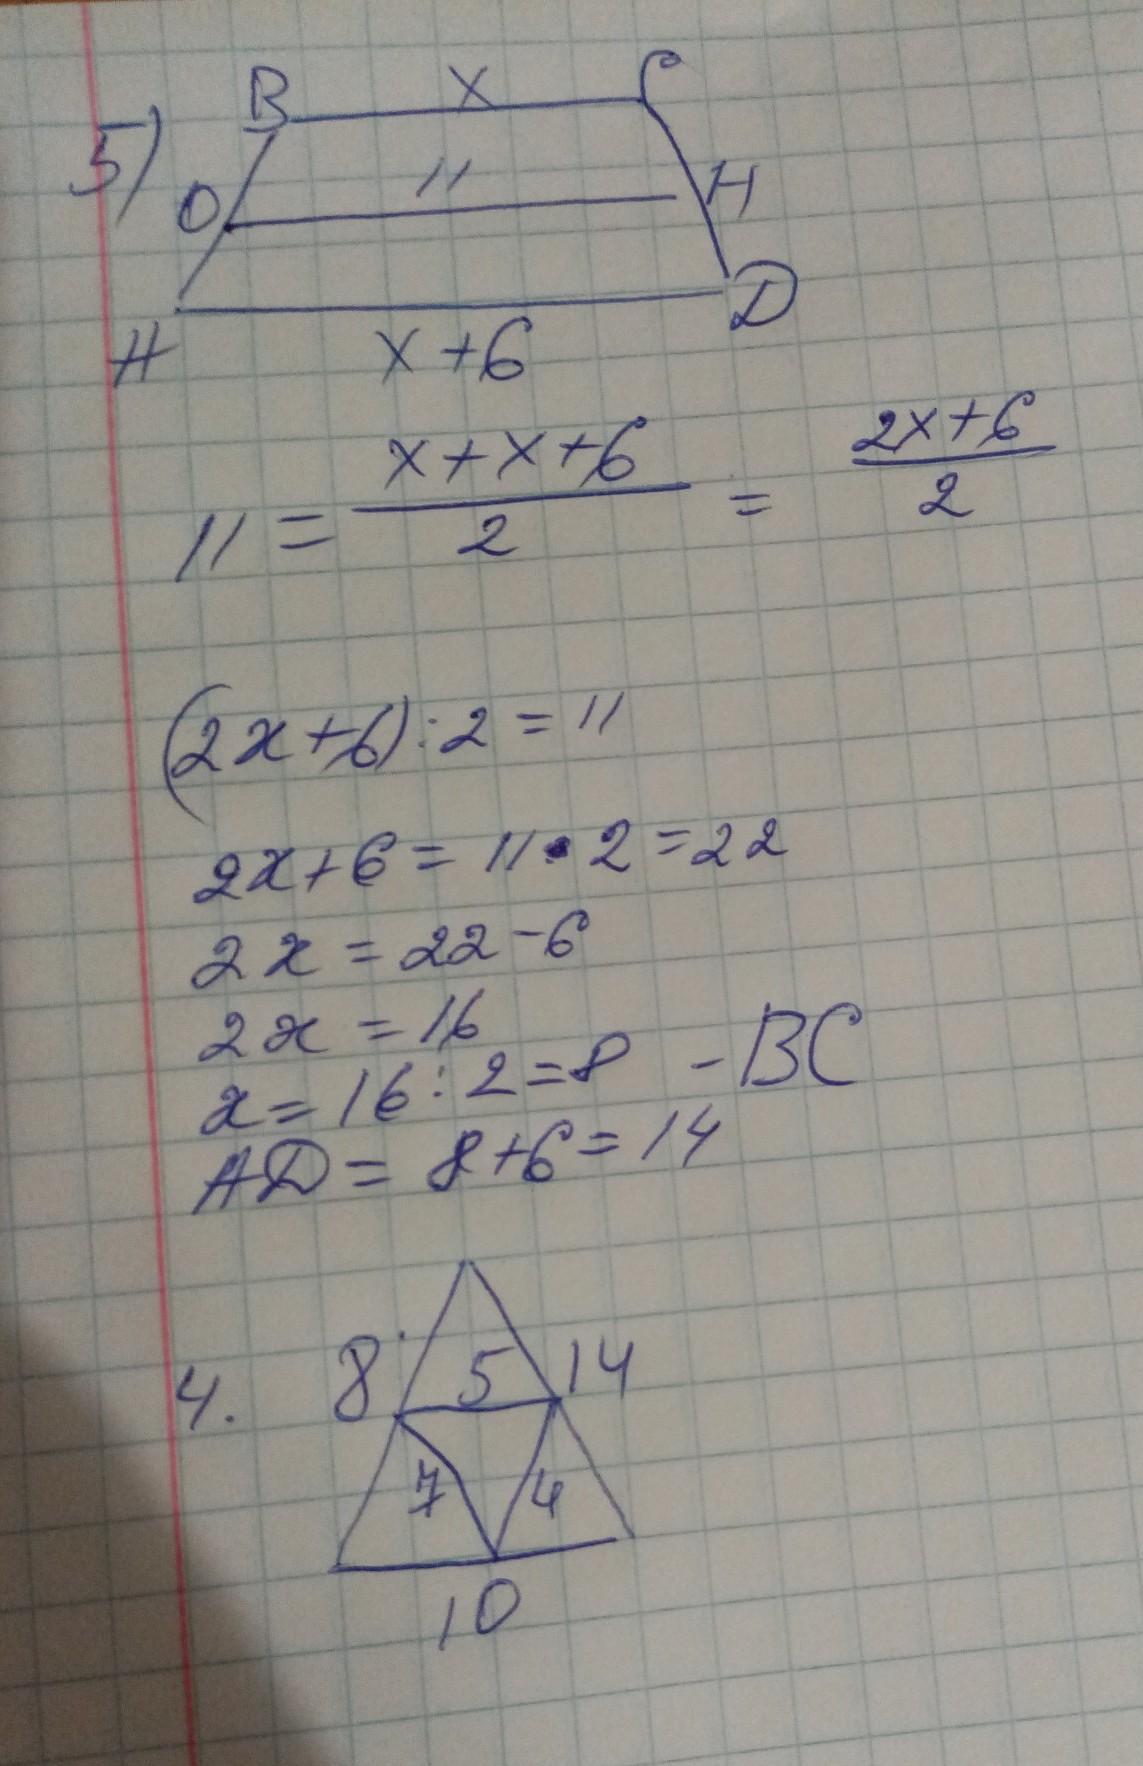 B x C
5)
O 11 H
A x+6 D
11 = \frac{x+x+6}{2} = \frac{2x+6}{2}
(2x+6):2=11
2x+6=11·2=22
2x=22-6
2x=16
x=16:2=8 - BC
AD=8+6=14
4. 8 5 14
7 4
10